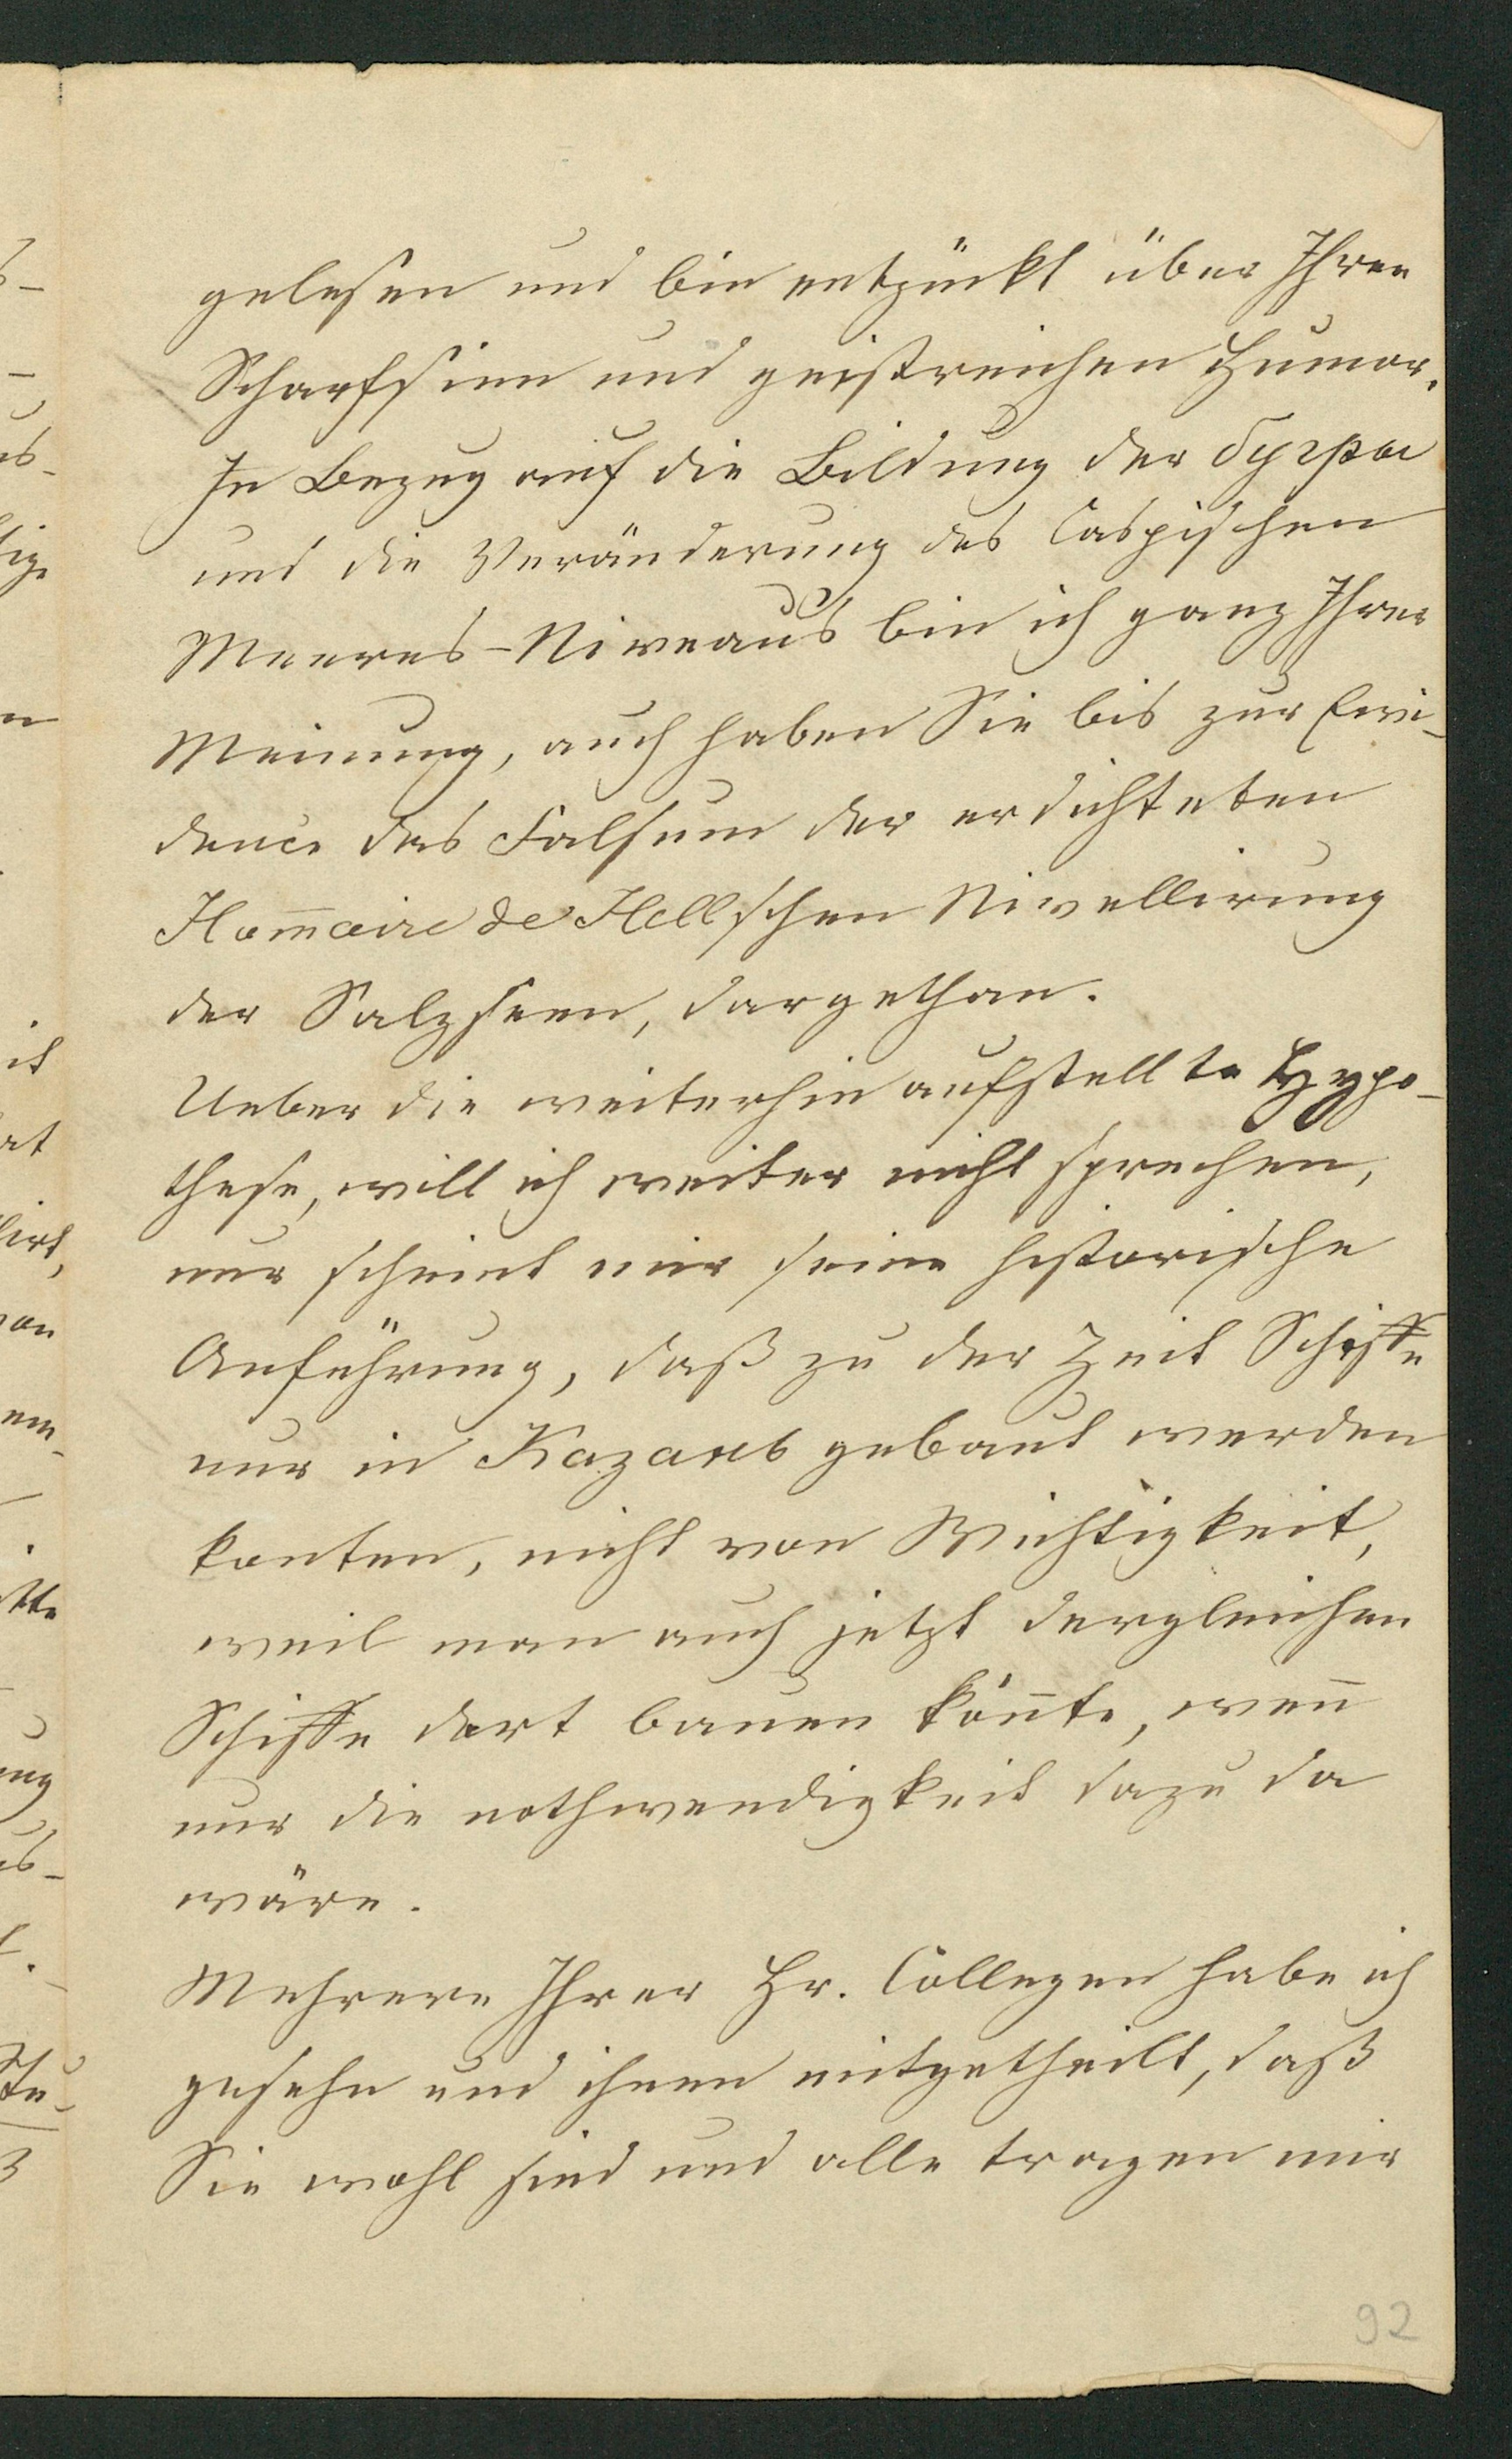 gelesen und bin entzückt über Ihren
Scharfsinn und geistreichen Humor.
In Bezug auf die Bildung der бугры
und die Veränderung des Caspischen
Meeres-Niveaus bin ich ganz Ihrer
Meinung, auch haben Sie bis zur Evi-
dence das Falsum der erdichteten
Hom̅aire de Hellschen Nivellirung
der Salzseen, dargethan.
Ueber die weiterhin aufstellte Hypo-
these, will ich weiter nicht sprechen,
nur scheint mir seine historische
Anführung, daß zu der Zeit Schiffe
nur in Казань gebaut werden
konten, nicht von Wichtigkeit,
weil man auch jetzt dergleichen
Schiffe dort bauen kön̅te, wen̅
nur die nothwendigkeit dazu da
wäre.
Mehrere Ihrer Hr. Collegen habe ich
gesehn und ihnen mitgetheilt, daß
Sie wohl sind und alle tragen mir
92